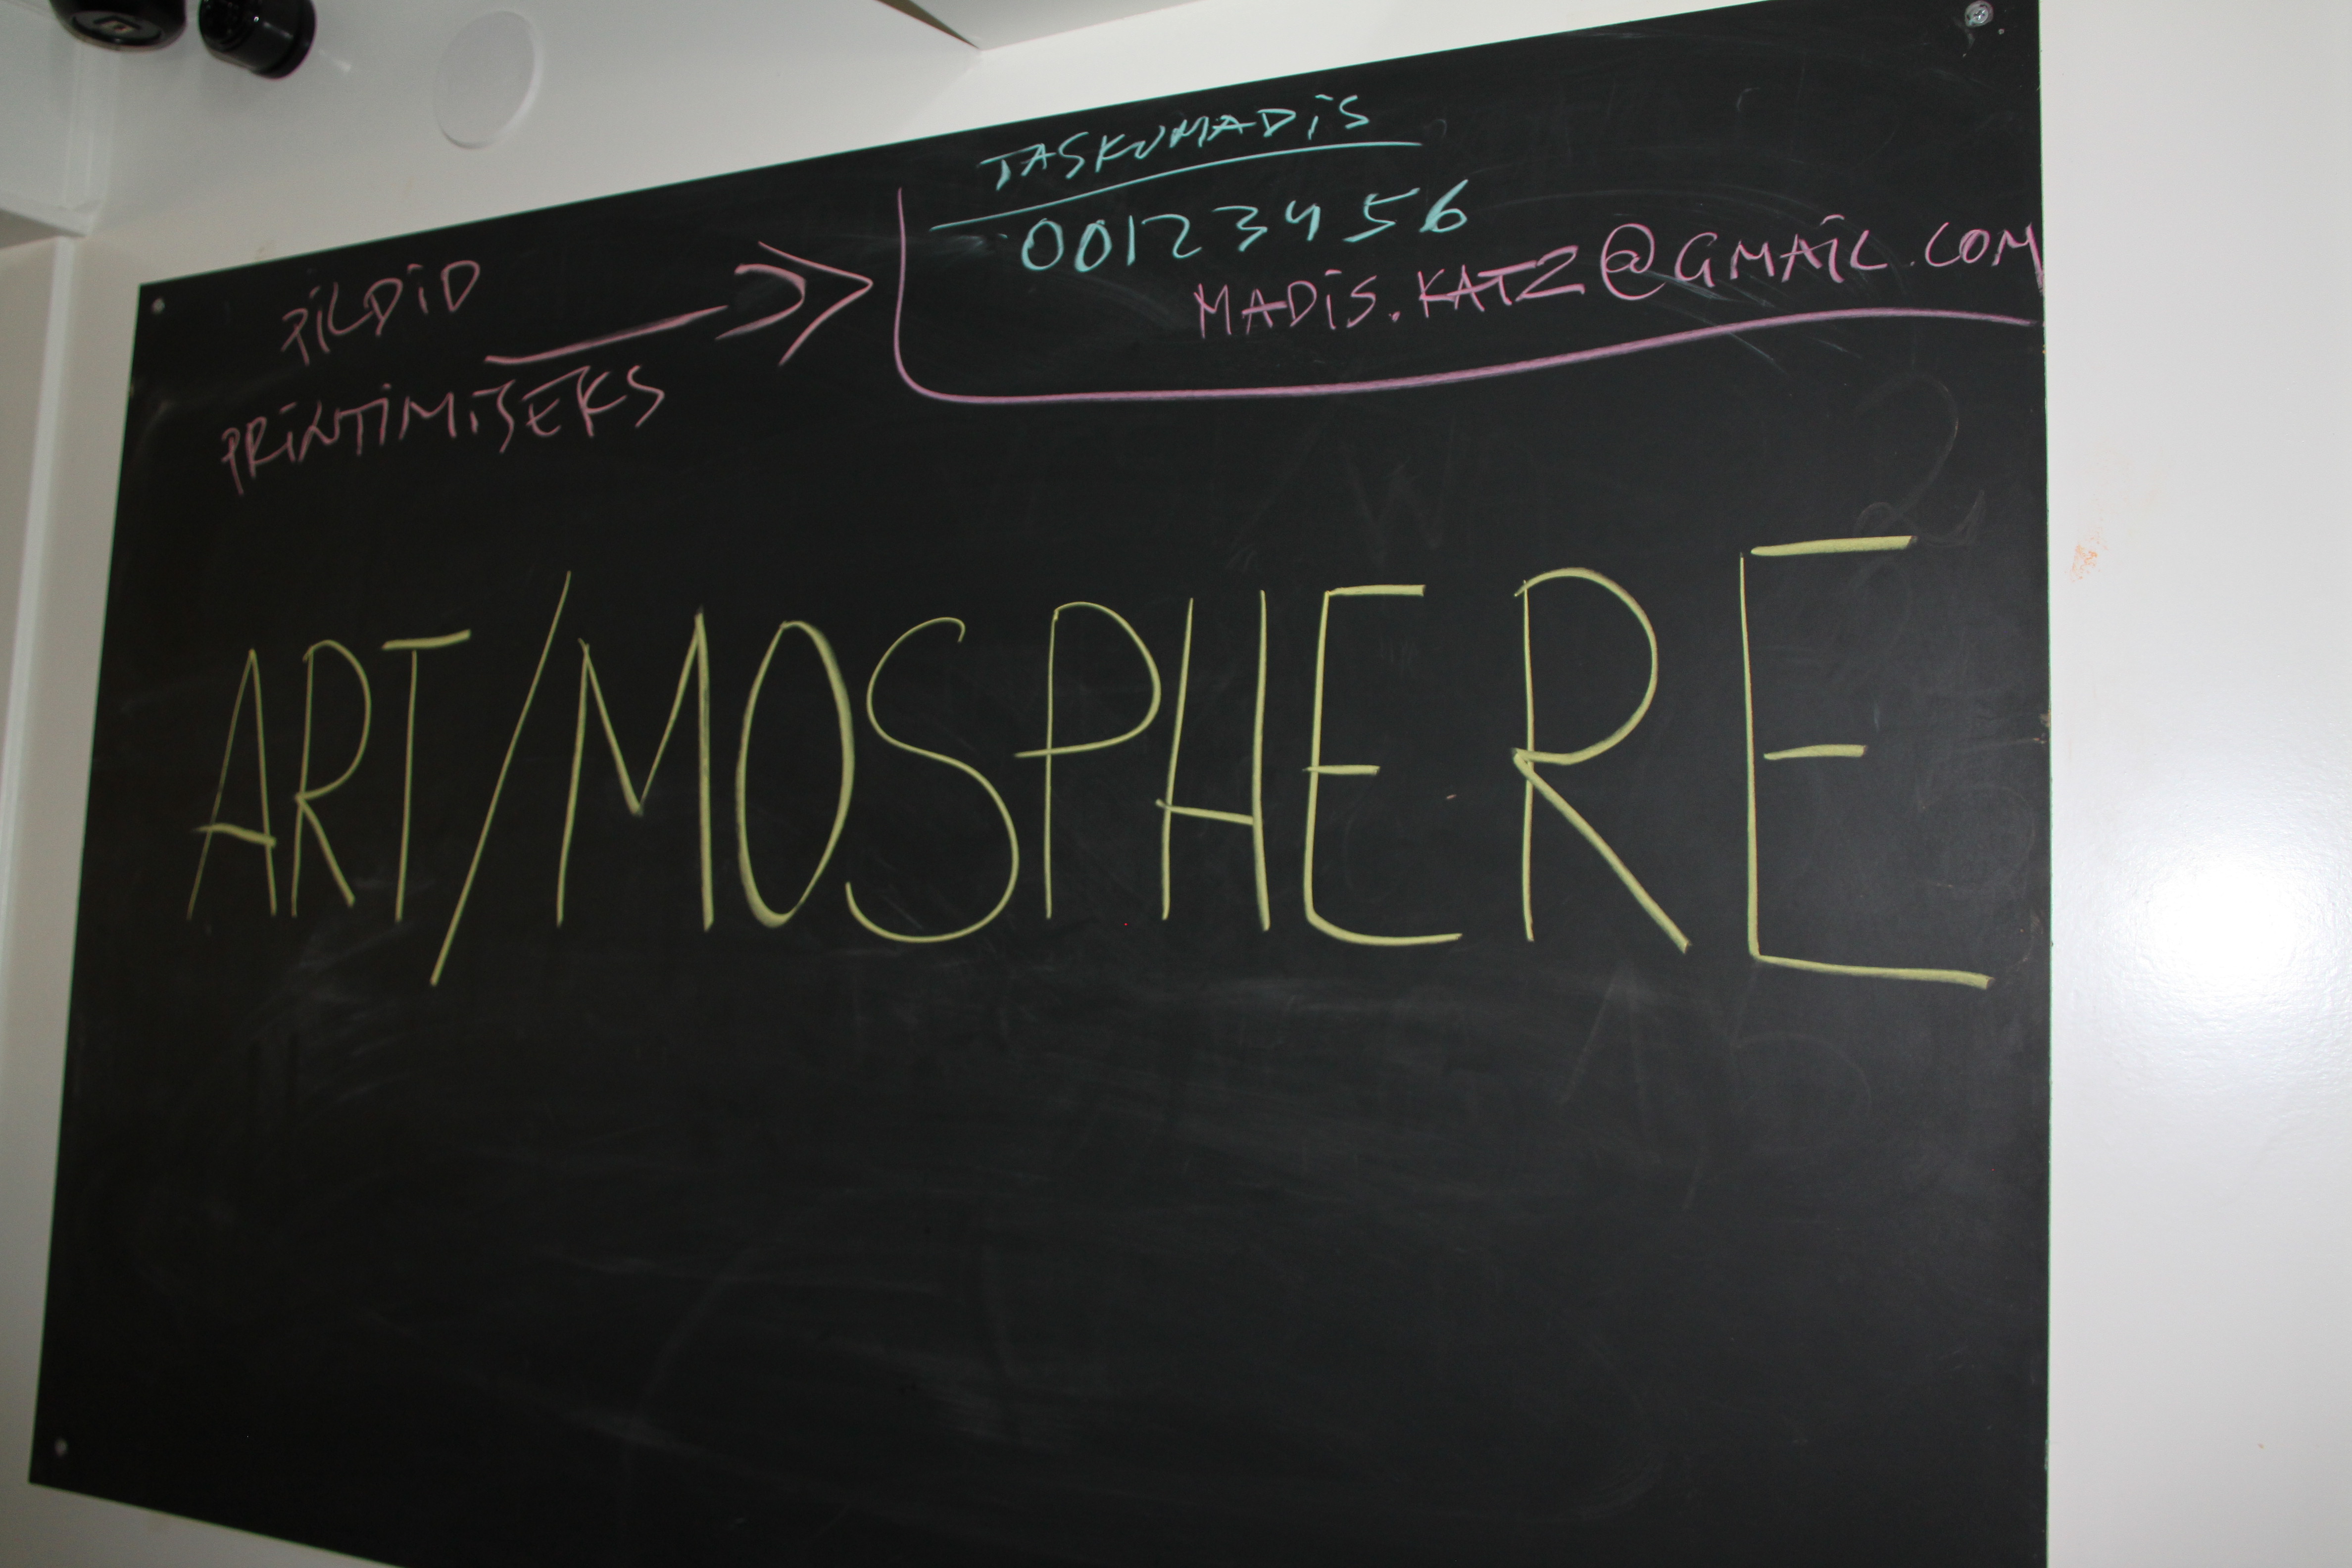 TASKUMADIS
00123456
MADIS.KATZ@GMAIL.COM
PILDID
PRINTIMISEKS
ART/MOSPHERE